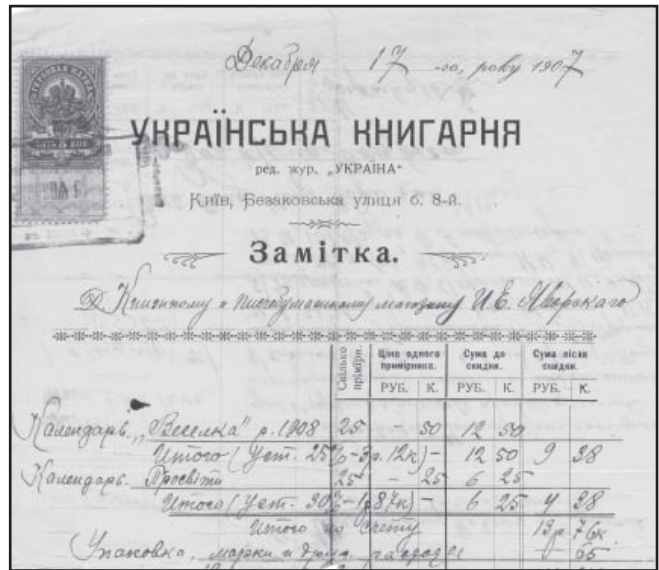 Декабря 17 -го, року 1907
УКРАЇНСЬКА КНИГАРНЯ
ред. жур. „УКРАЇНА"
Київ, Безаковська улиця б. 8-й.
Замітка.
Книжному и писчебумажному магазину И. Е. Яворскаго
Скілько примірн. Ціна одного примірника. Сума до скидки. Сума після скидки.
РУБ. К. РУБ. К. РУБ. К.
Календарь „Веселка" р. 1908 25 - 50 12 50
Итого (Уст. 25% - 3р. 12к) - 12 50 9 38
Календарь Просвіти 25 - 25 6 25
Итого (Уст. 30% - 1р 87к) - 6 25 4 38
Итого по счету 13р 76к
Упаковка, марки и друг. расходы 65